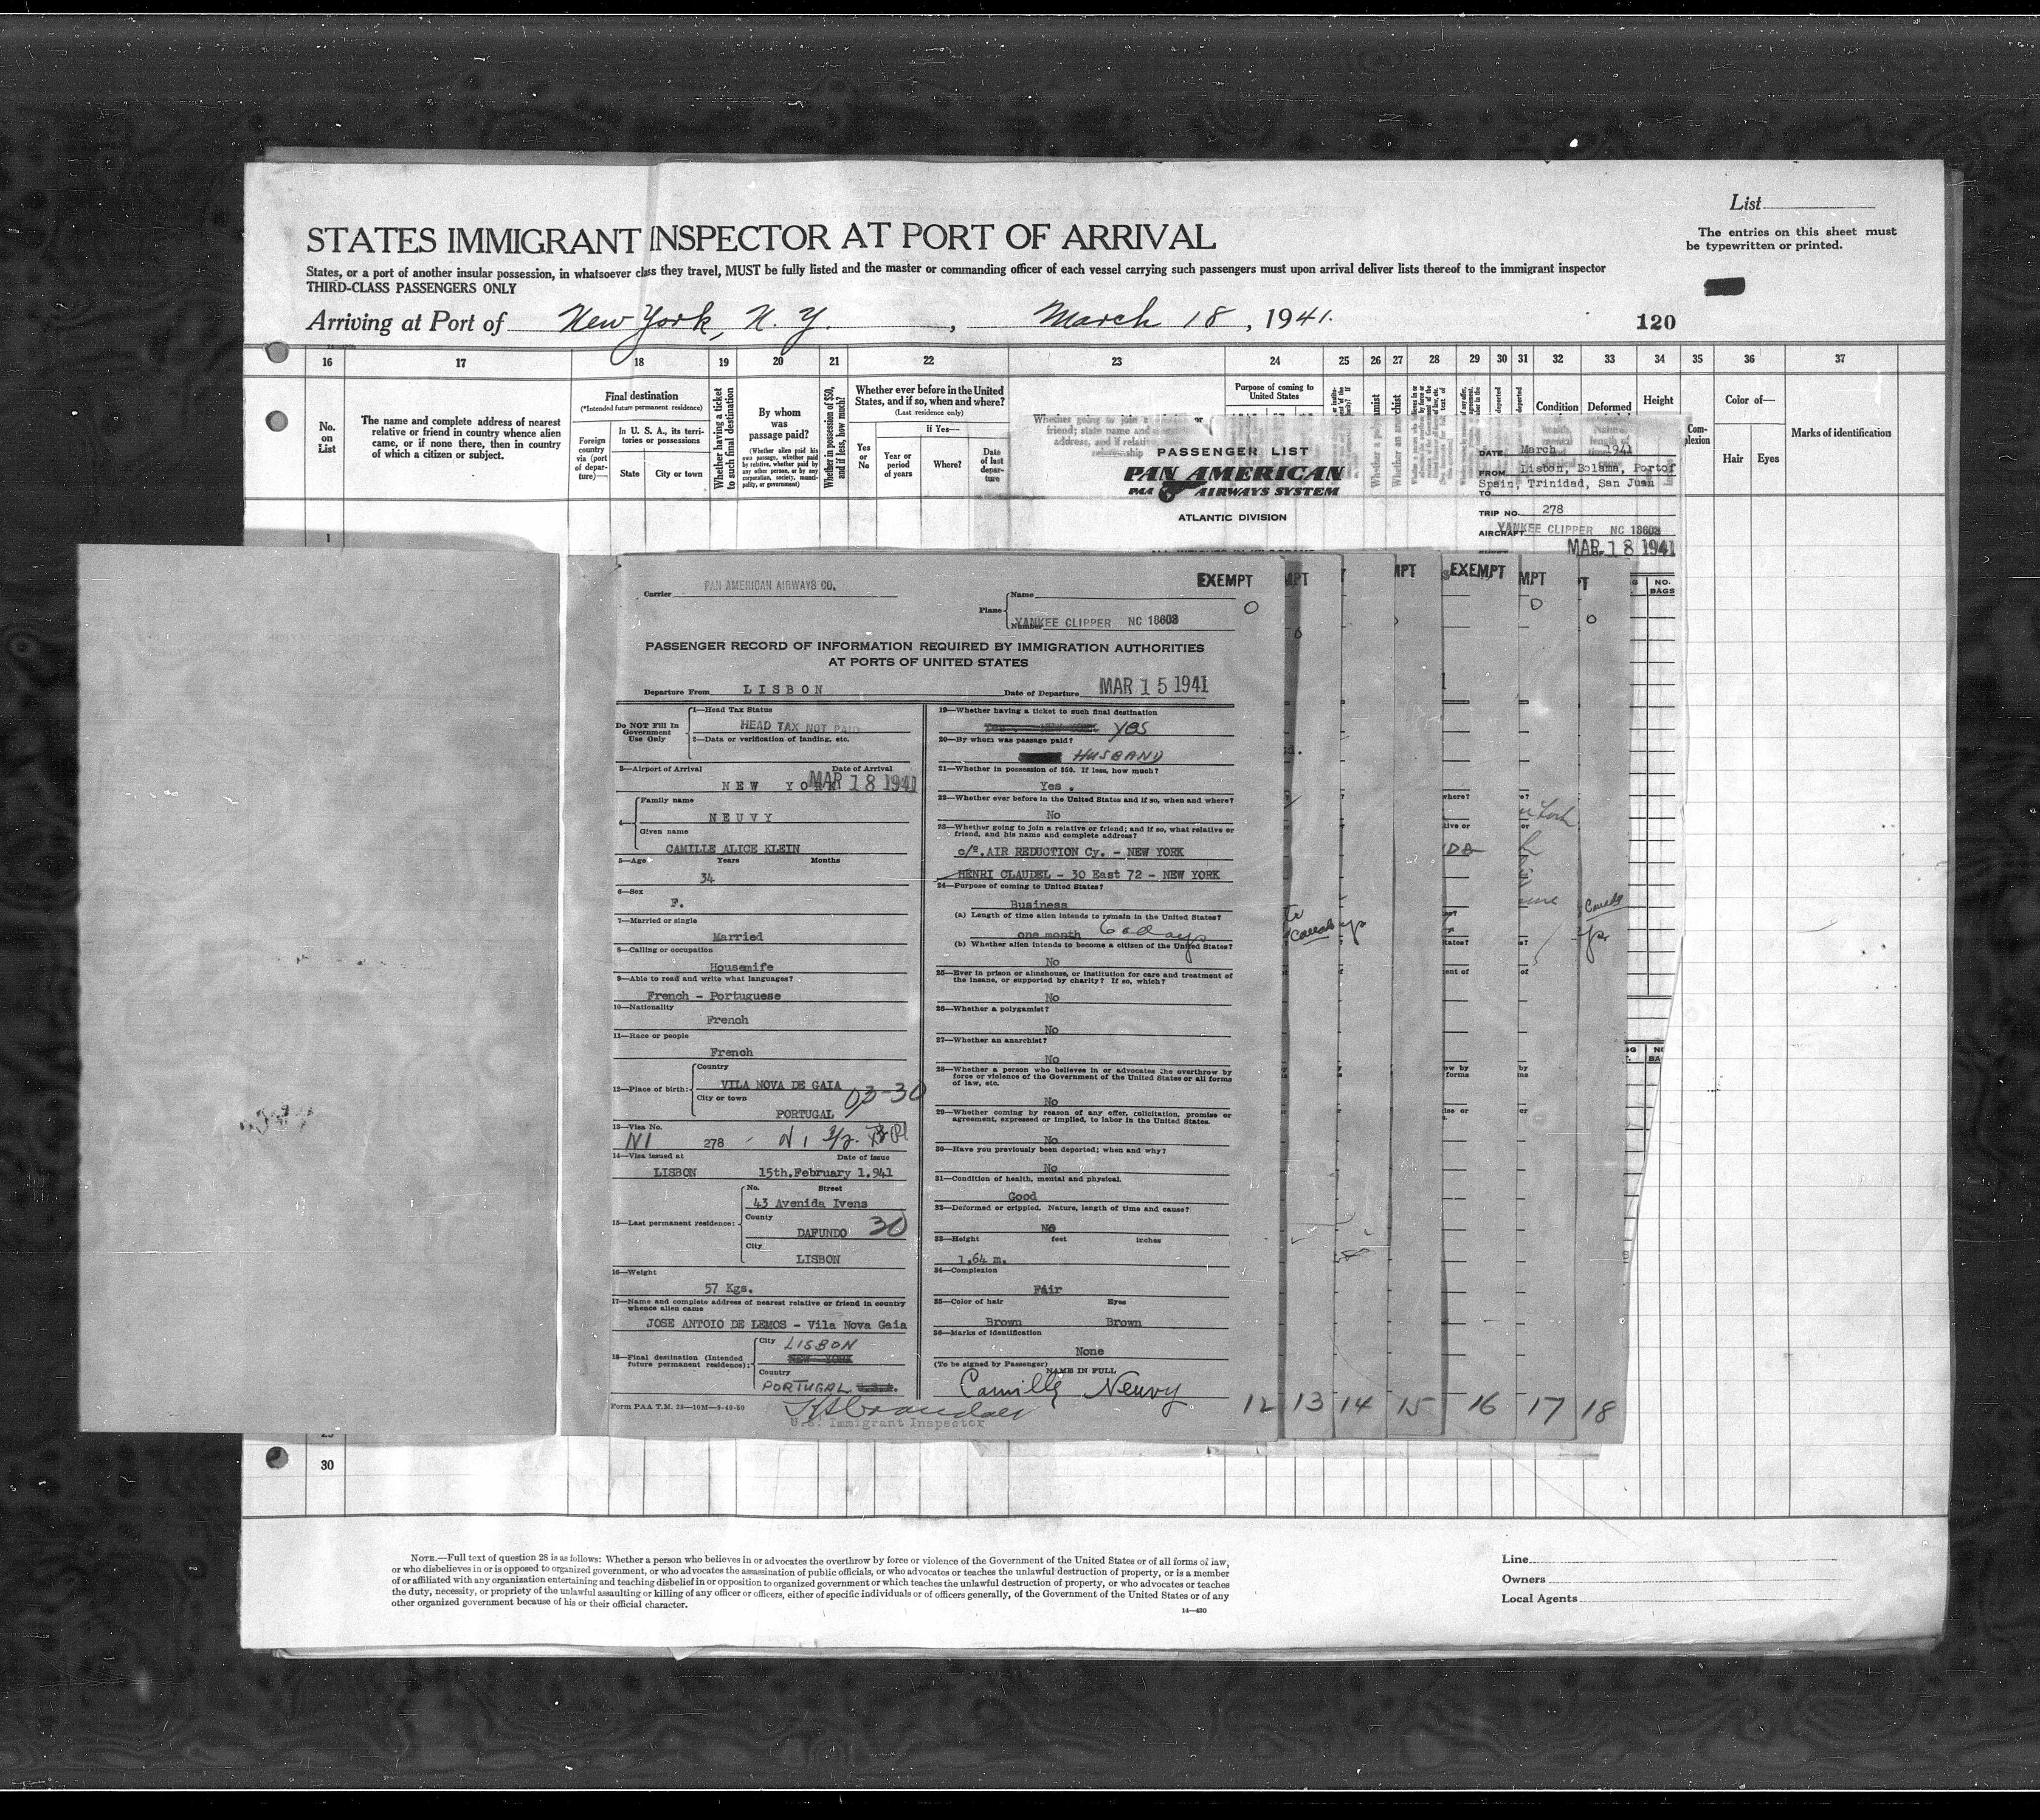 List
The entries on this sheet must
be typewritten or printed.
STATES IMMIGRANT INSPECTOR AT PORT OF ARRIVAL
States, or a port of another insular possession, in whatsoever class they travel, MUST be fully listed and the master or commanding officer of each vessel carrying such passengers must upon arrival deliver lists thereof to the immigrant inspector
THIRD-CLASS PASSENGERS ONLY
Arriving at Port of New York, N. Y., March 18, 1941.
120
16 17 18 19 20 21 22 23 24 25 26 27 28 29 30 31 32 33 34 35 36 37
No. on List
The name and complete address of nearest
relative or friend in country whence alien
came, or if none there, then in country
of which a citizen or subject.
Final destination
(*Intended future permanent residence)
Foreign country via (port of departure)—
In U. S. A., its territories or possessions
State
City or town
Whether having a ticket to such final destination
By whom was passage paid?
(Whether alien paid his own passage, whether paid by relative, whether paid by any other person, or by any corporation, society, municipality, or government)
Whether in possession of $50, and if less, how much?
Whether ever before in the United
States, and if so, when and where?
(Last residence only)
If Yes—
Yes or No
Year or period of years
Where?
Date of last departure
Purpose of coming to United States
Condition
Deformed
Height
Complexion
Color of—
Hair
Eyes
Marks of identification
PASSENGER LIST
PAN AMERICAN
PAA AIRWAYS SYSTEM
ATLANTIC DIVISION
DATE March 1941
FROM Lisbon, Bolama, Portof
Spain, Trinidad, San Juan
TO
TRIP NO. 278
AIRCRAFT YANKEE CLIPPER NC 18603
MAR 18 1941
NO. BAGS
1
EXEMPT
Carrier PAN AMERICAN AIRWAYS CO.
Plane
Name
Number YANKEE CLIPPER NC 18603
PASSENGER RECORD OF INFORMATION REQUIRED BY IMMIGRATION AUTHORITIES
AT PORTS OF UNITED STATES
Departure From LISBON
Date of Departure MAR 15 1941
Do NOT Fill In Government Use Only
1—Head Tax Status
HEAD TAX NOT PAID
2—Data or verification of landing, etc.
3—Airport of Arrival
Date of Arrival
NEW YORK MAR 18 1941
4— Family name
NEUVY
Given name
CAMILLE ALICE KLEIN
5—Age Years Months
34
6—Sex
F.
7—Married or single
Married
8—Calling or occupation
Housewife
9—Able to read and write what languages?
French - Portuguese
10—Nationality
French
11—Race or people
French
12—Place of birth:
Country
VILA NOVA DE GAIA
City or town
PORTUGAL
03-30
13—Visa No.
NI 278
14—Visa issued at
Date of issue
LISBON 15th.February 1.941
15—Last permanent residence:
No. Street
43 Avenida Ivens
County
DAFUNDO 30
City
LISBON
16—Weight
57 Kgs.
17—Name and complete address of nearest relative or friend in country
whence alien came
JOSE ANTOIO DE LEMOS - Vila Nova Gaia
18—Final destination (Intended
future permanent residence):
City
LISBON
NEW YORK
Country
PORTUGAL U.S.A.
Form PAA T.M. 28—10M—9-40-50
U.S. Immigrant Inspector
19—Whether having a ticket to such final destination
Yes
20—By whom was passage paid?
HUSBAND
21—Whether in possession of $50. If less, how much?
Yes .
22—Whether ever before in the United States and if so, when and where?
No
23—Whether going to join a relative or friend; and if so, what relative or
friend, and his name and complete address?
c/º.AIR REDUCTION Cy. - NEW YORK
HENRI CLAUDEL - 30 East 72 - NEW YORK
24—Purpose of coming to United States?
Business
(a) Length of time alien intends to remain in the United States?
one month 60 days
(b) Whether alien intends to become a citizen of the United States?
No
25—Ever in prison or almshouse, or institution for care and treatment of
the insane, or supported by charity? If so, which?
No
26—Whether a polygamist?
No
27—Whether an anarchist?
No
28—Whether a person who believes in or advocates the overthrow by
force or violence of the Government of the United States or all forms
of law, etc.
No
29—Whether coming by reason of any offer, solicitation, promise or
agreement, expressed or implied, to labor in the United States.
No
30—Have you previously been deported; when and why?
No
31—Condition of health, mental and physical.
Good
32—Deformed or crippled. Nature, length of time and cause?
No
33—Height feet inches
1,64 m.
34—Complexion
Fair
35—Color of hair Eyes
Brown Brown
36—Marks of identification
None
(To be signed by Passenger)
NAME IN FULL
Camille Neuvy
EXEMPT
12 13 14 15 16 17 18
30
NOTE.—Full text of question 28 is as follows: Whether a person who believes in or advocates the overthrow by force or violence of the Government of the United States or of all forms of law,
or who disbelieves in or is opposed to organized government, or who advocates the assassination of public officials, or who advocates or teaches the unlawful destruction of property, or is a member
of or affiliated with any organization entertaining and teaching disbelief in or opposition to organized government or which teaches the unlawful destruction of property, or who advocates or teaches
the duty, necessity, or propriety of the unlawful assaulting or killing of any officer or officers, either of specific individuals or of officers generally, of the Government of the United States or of any
other organized government because of his or their official character.
14—430
Line
Owners
Local Agents